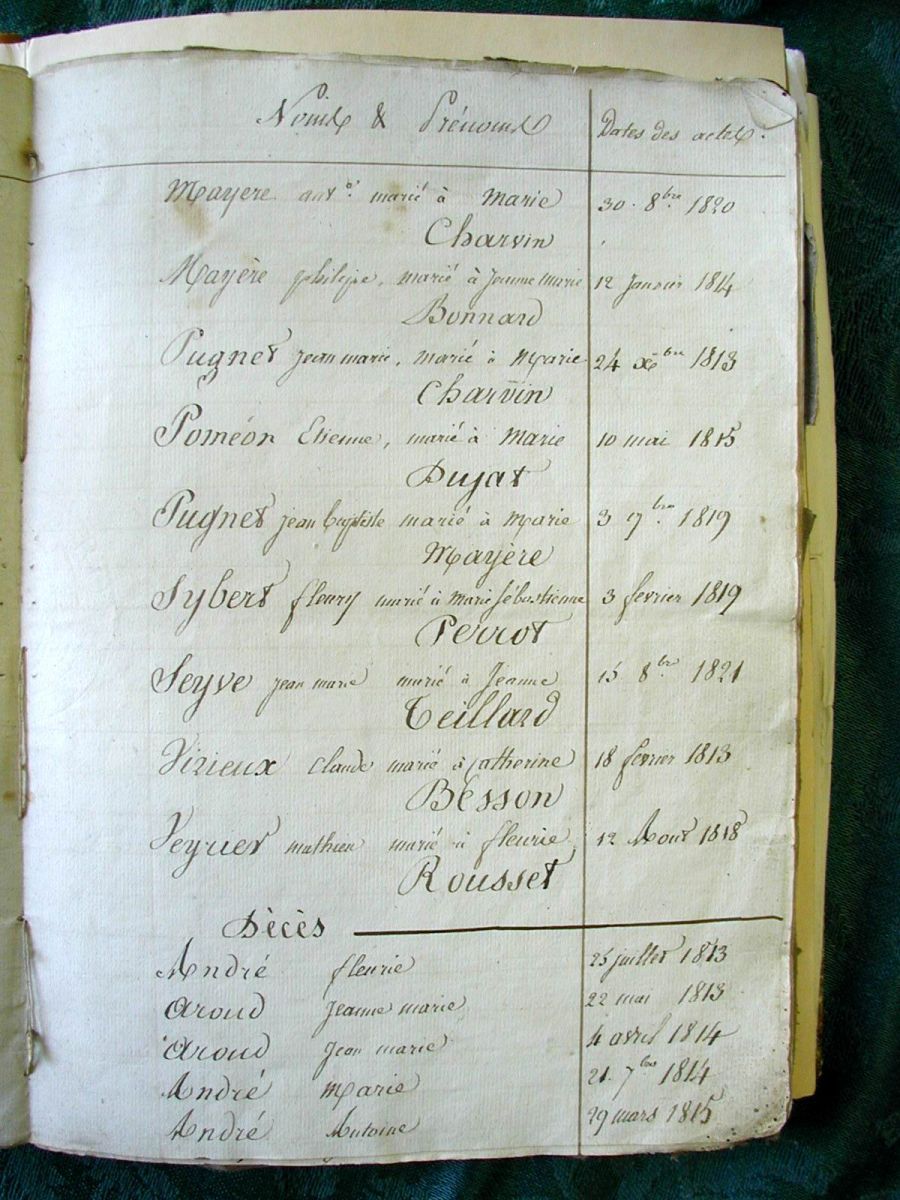 Noms & Prénoms Dates des actes.
Mayere ant.e marié à Marie 30. 8bre 1820
Charvin
Mayère philipe, marié à Jeanne marie 12 Janvier 1814
Bonnard
Pugnet Jean marie, marié à Marie 24 Xbre 1813
Charvin
Poméon Etienne, marié à Marie 10 mai 1815
Dujat
Pugnet Jean Baptiste marié à Marie 3 7bre 1819
Mayère
Sybert fleury marié à Marie Sébastienne 3 fevrier 1819
Perrot
Seyve jean marie marié à Jeanne 15 8bre 1821
Teillard
Virieux Claude marié à Catherine 18 fevrier 1813
Besson
Veyrier mathieu marié à fleurie 12 Aout 1818
Rousset
Décès
André fleurie 25 juillet 1813
Aroud Jeanne marie 22 mai 1813
Aroud Jean marie 4 avril 1814
André Marie 21. 7bre 1814
André Antoine 29 mars 1815